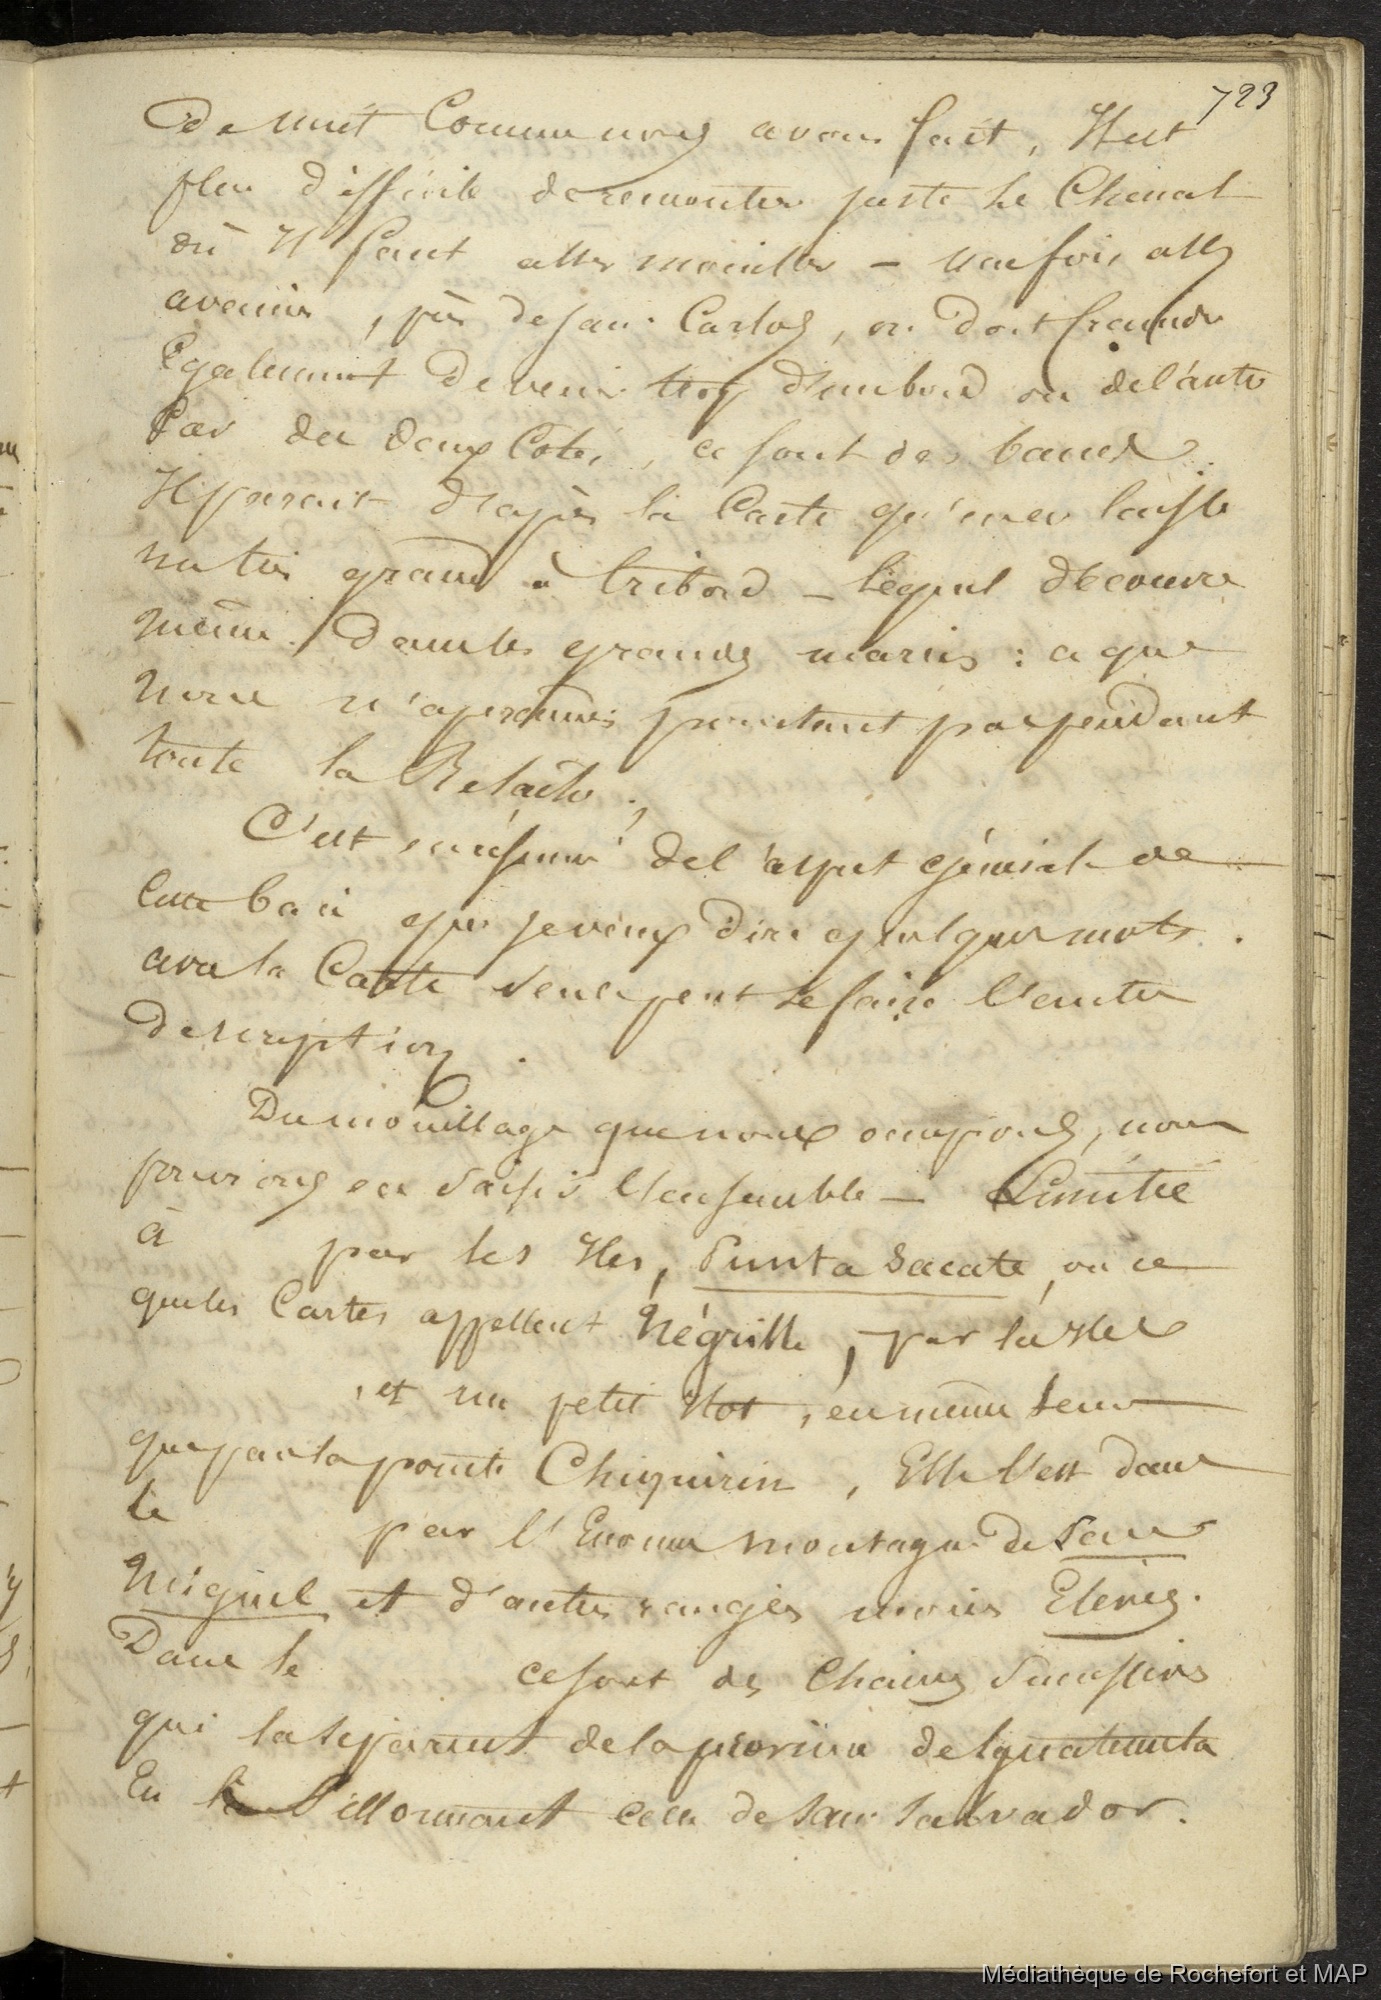 723
de nuit Comme nous avons fait, Il est
plus difficile de remonter juste le Chenal
où Il faut aller mouiller – une fois assez
avancés, près de San Carlos, on doit craindre
Egalement de venir trop d'un bord ou de l'autre
Car des deux Cotés, ce sont des bancs.
Il parait d'après la Carte qu'on en laisse
un très grand à tribord – lequel découvre
même dans les grandes marées : ce que
nous n'aperçumes pourtant pas pendant
toute la Relache.
C'est en résumé de l'aspect général de
Cette baie que je veux dire quelques mots.
avec la Carte seule peut se faire l'entière
description.
Du mouillage que nous occupons, nous
pouvions en saisir l'ensemble – Limitée
à par les Iles, Punta Sacate, ou ce
que les Cartes appellent Négritte, par la Isle
, et un petit Ilot, en même tems
que par la pointe Chiquirin, Elle l'est dans
le par l'Enorme montagne de San
Miguel et d'autres rangées moins Elevées.
Dans le ce sont des Chaines successives
qui la séparent de la province de Guatemala
En sillonnant celle de San Salvador.
Médiathèque de Rochefort et MAP